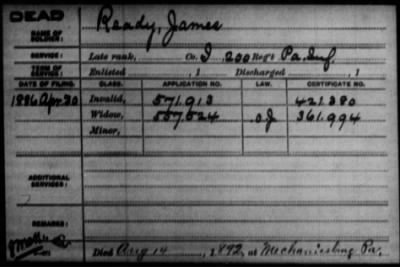 DEAD
NAME OF SOLDIER: Ready, James
SERVICE: Late rank, Co. I 200 Reg't Pa. Inf.
TERM OF SERVICE: Enlisted , 1 Discharged , 1
DATE OF FILING. CLASS. APPLICATION NO. LAW. CERTIFICATE NO.
1886 Apr. 30 Invalid, 571.913 421.380
Widow, 557.624 361.994
Minor,
ADDITIONAL SERVICES:
REMARKS:
Died Aug 14, 1892, at Mechanicsburg Pa.